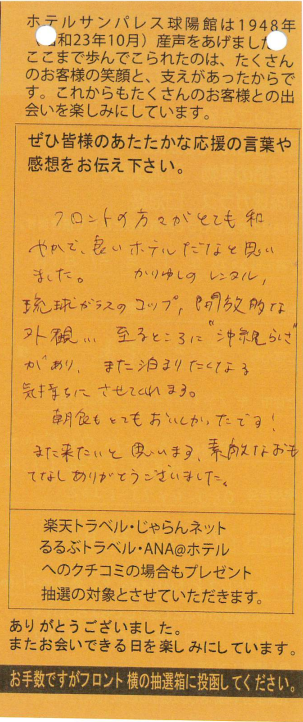 ホテルサンパレス球陽館は1948年
和23年10月）産声をあげました
ここまで歩んでこられたのは、たくさん
のお客様の笑顔と、支えがあったからで
す。これからもたくさんのお客様との出
会いを楽しみにしています。
ぜひ皆様のあたたかな応援の言葉や
感想をお伝え下さい。
フロントの方々がとても和
やかで、良いホテルだなと思い
ました。 かりゆしのレンタル,
琉球ガラスのコップ, 開放的な
外観… 至るところに"沖縄らしさ"
があり、また泊まりたくなる
気持ちにさせてくれます。
朝食もとてもおいしかったです！
また来たいと思います、素敵なおも
てなしありがとうございました。
楽天トラベル・じゃらんネット
るるぶトラベル・ANA@ホテル
へのクチコミの場合もプレゼント
抽選の対象とさせていただきます。
ありがとうございました。
またお会いできる日を楽しみにしています。
お手数ですがフロント横の抽選箱に投函してください。